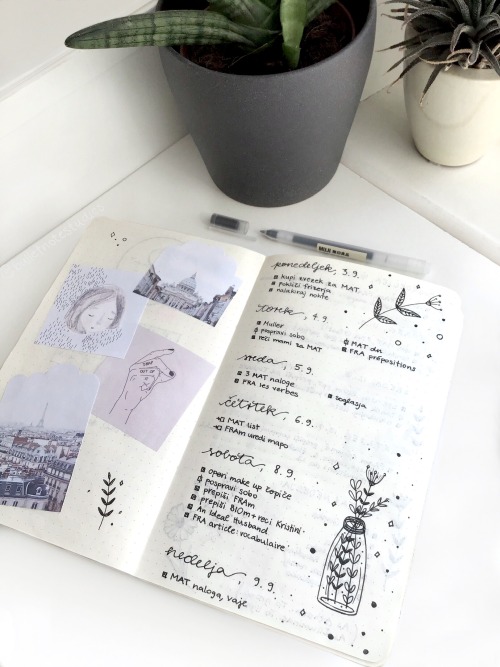 ponedeljek, 3.9.
kupi zvezek za MAT
pokliči frizerja
nalakiraj nohte
torek, 4.9.
Müller
popravi sobo
reci mami za MAT
MAT dn
FRA prépositions
sreda, 5.9.
3 MAT naloge
FRA les verbes
soglasja
četrtek, 6.9.
MAT list
FRAm uredi mapo
sobota, 8.9.
operi make up čopiče
pospravi sobo
prepiši FRAm
prepiši BIOm + reci Kristini
An Ideal Husband
FRA article: vocabulaire
nedelja, 9.9.
MAT naloga, vaje